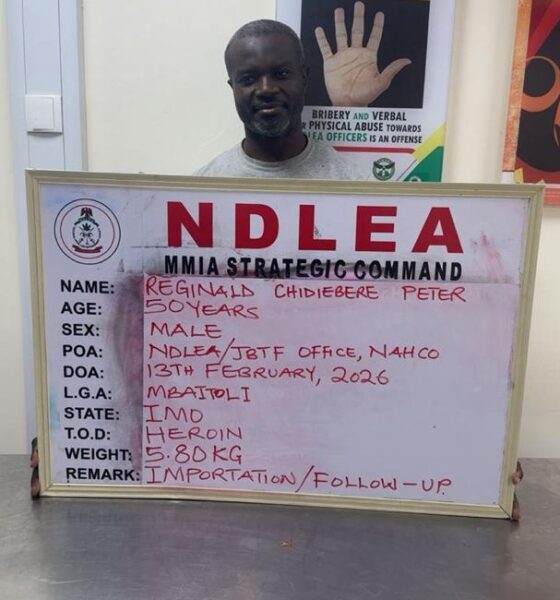 BRIBERY AND VERBAL
PHYSICAL ABUSE TOWARDS
LEA OFFICERS IS AN OFFENSE
NDLEA
MMIA STRATEGIC COMMAND
NAME: REGINALD CHIDIEBERE PETER
AGE: 50 YEARS
SEX: MALE
POA: NDLEA/JBTF OFFICE, NAHCO
DOA: 13TH FEBRUARY, 2026
L.G.A: MBAITOLI
STATE: IMO
T.O.D: HEROIN
WEIGHT: 5.80KG
REMARK: IMPORTATION/FOLLOW-UP